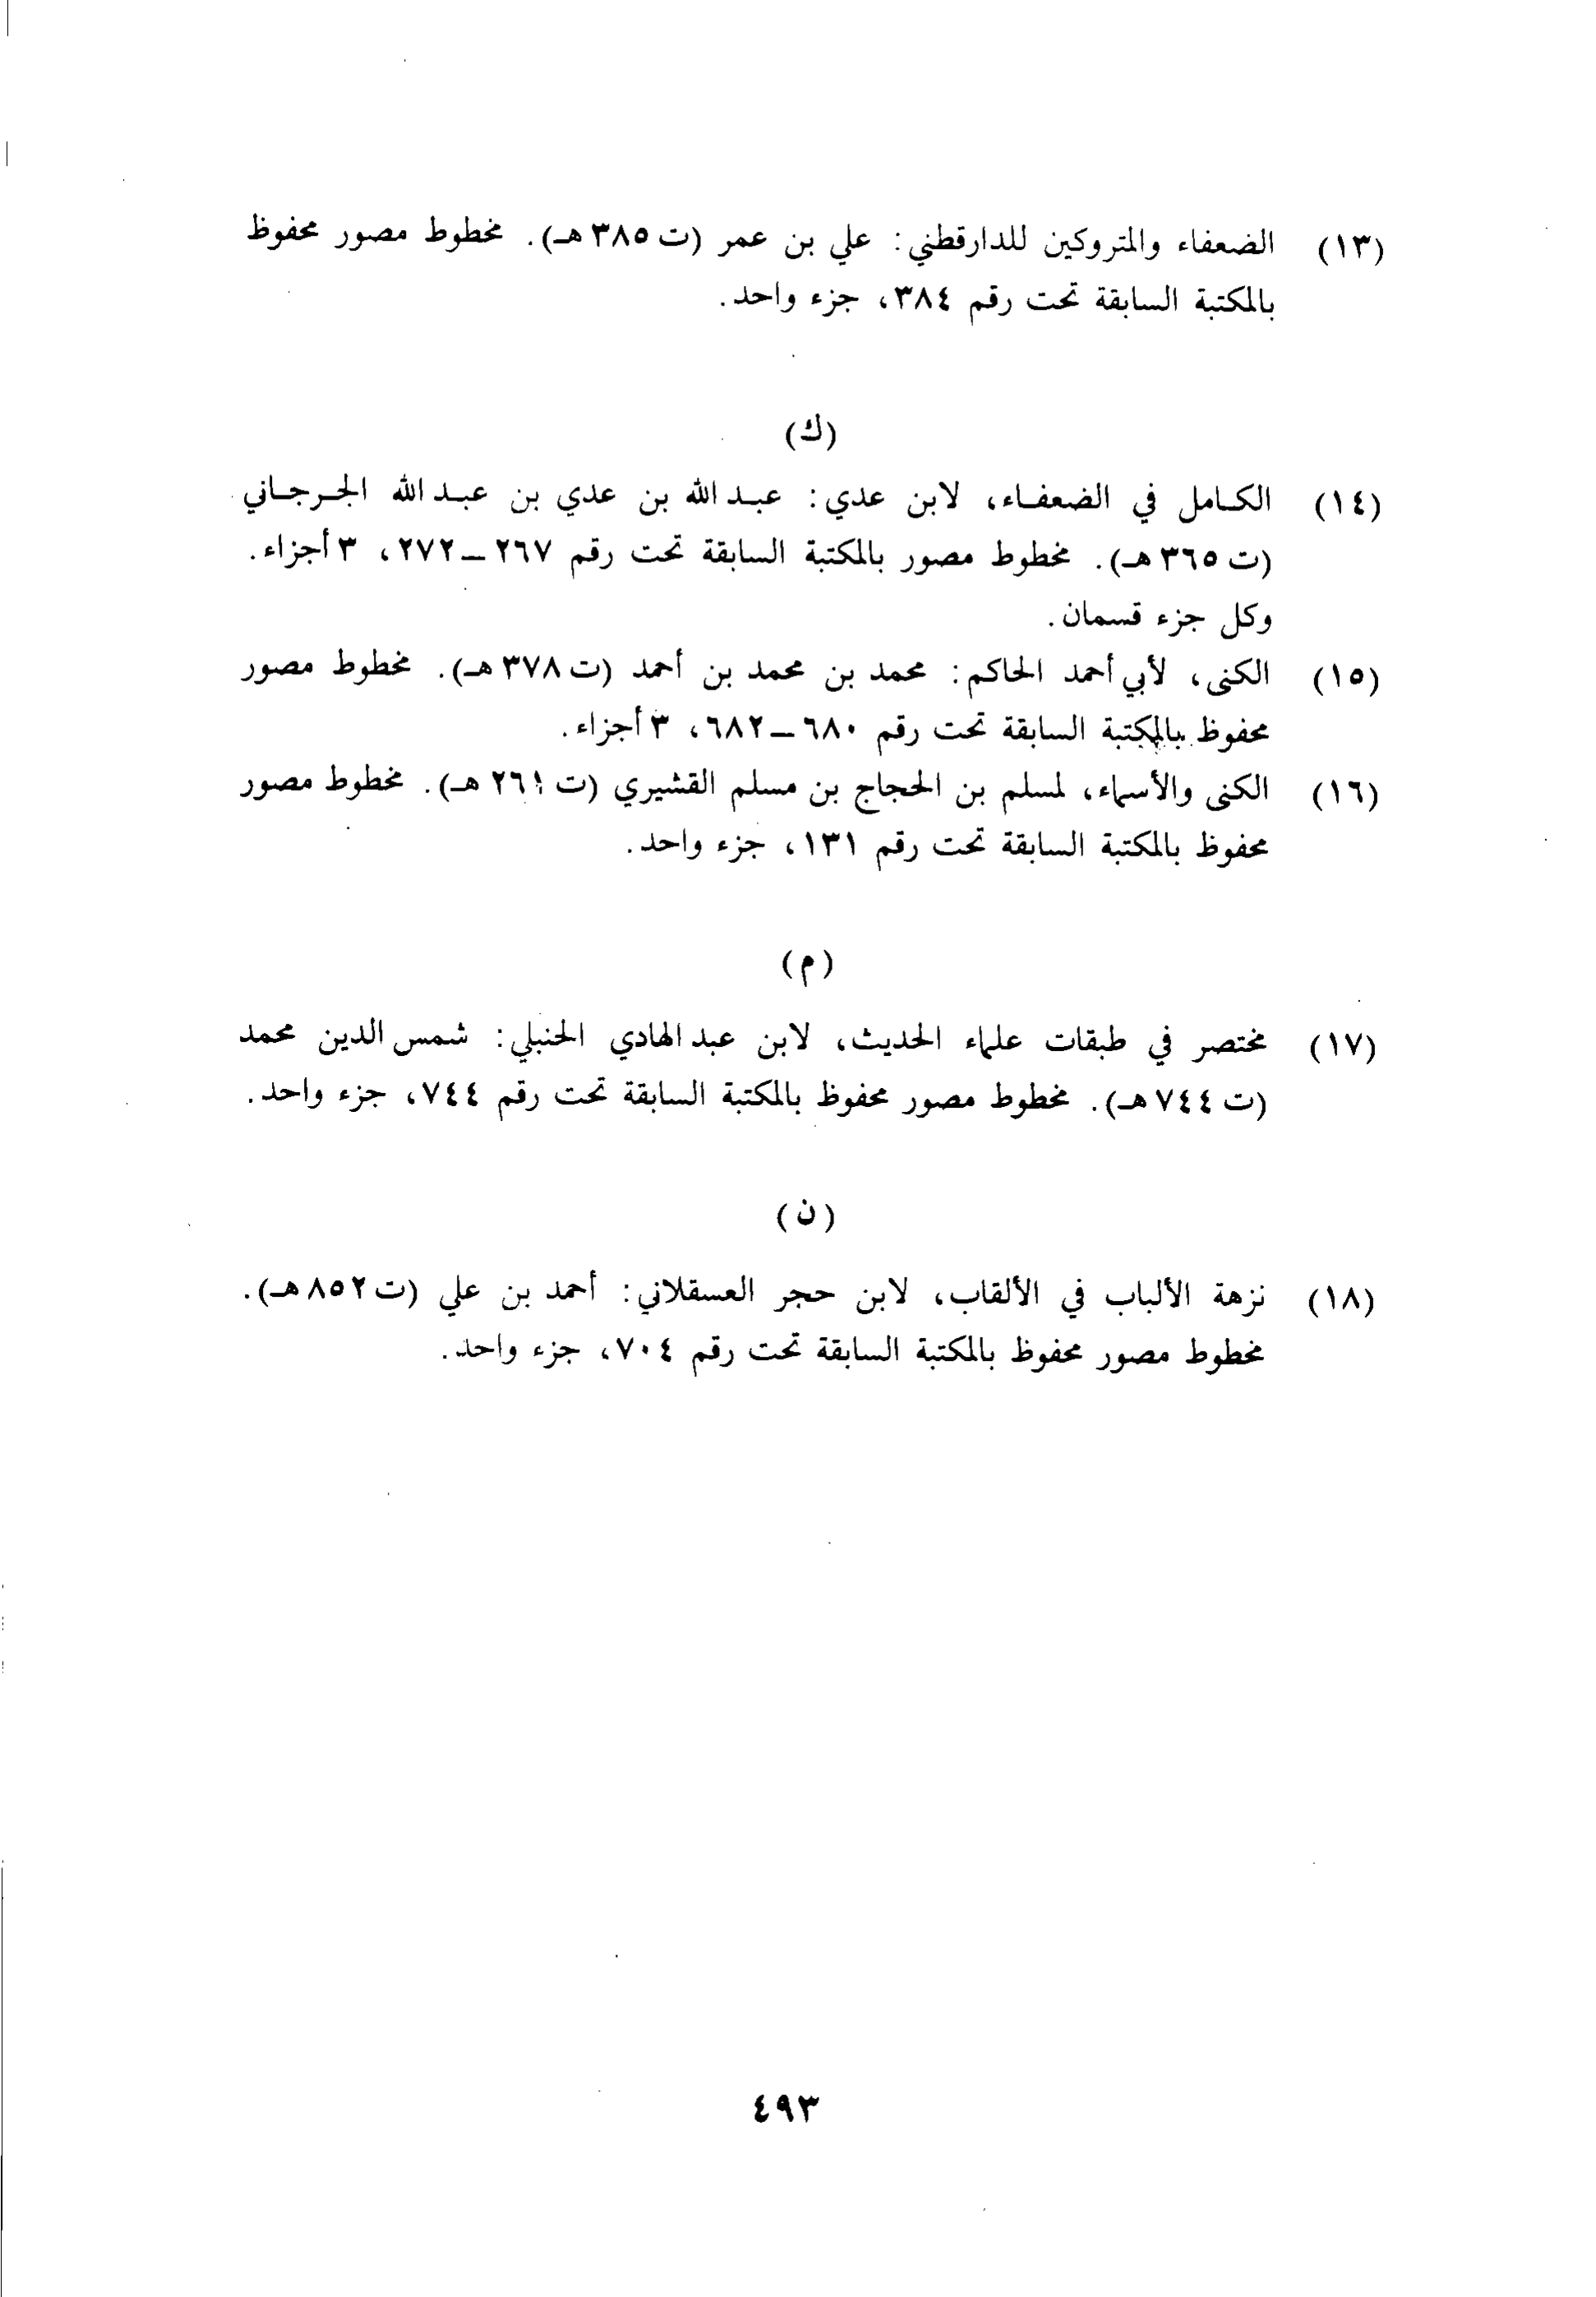 (١٣) الضعفاء والمتروكين للدارقطني: علي بن عمر (ت ٣٨٥ هـ). مخطوط مصور محفوظ
بالمكتبة السابقة تحت رقم ٣٨٤، جزء واحد.
(ك)
(١٤) الكامل في الضعفاء، لابن عدي: عبد الله بن عدي بن عبد الله الجرجاني
(ت ٣٦٥ هـ). مخطوط مصور بالمكتبة السابقة تحت رقم ٢٦٧ – ٢٧٢، ٣ أجزاء.
وكل جزء قسمان.
(١٥) الكنى، لأبي أحمد الحاكم: محمد بن محمد بن أحمد (ت ٣٧٨ هـ). مخطوط مصور
محفوظ بالمكتبة السابقة تحت رقم ٦٨٠ – ٦٨٢، ٣ أجزاء.
(١٦) الكنى والأسماء، لمسلم بن الحجاج بن مسلم القشيري (ت ٢٦١ هـ). مخطوط مصور
محفوظ بالمكتبة السابقة تحت رقم ١٣١، جزء واحد.
(م)
(١٧) مختصر في طبقات علماء الحديث، لابن عبد الهادي الحنبلي: شمس الدين محمد
(ت ٧٤٤ هـ). مخطوط مصور محفوظ بالمكتبة السابقة تحت رقم ٧٤٤، جزء واحد.
(ن)
(١٨) نزهة الألباب في الألقاب، لابن حجر العسقلاني: أحمد بن علي (ت ٨٥٢ هـ).
مخطوط مصور محفوظ بالمكتبة السابقة تحت رقم ٧٠٤، جزء واحد.
٤٩٣